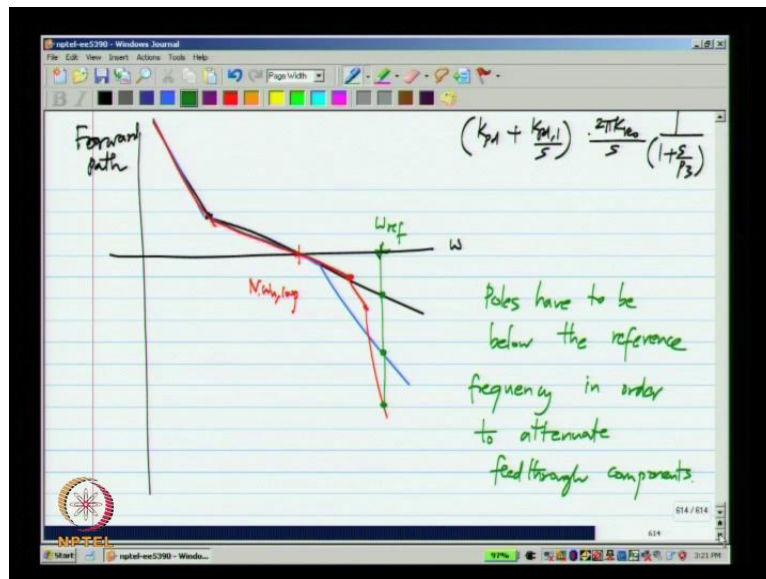 nptel-ee5390 - Windows Journal
File Edit View Insert Actions Tools Help
Page Width
B I
Forward
path
(K_pd + K_pd,I/s) · 2πK_vco/s · 1/(1+s/p_3)
ω_ref
ω
Poles have to be
below the reference
frequency in order
to attenuate
feedthrough components.
614 / 614
614
NPTEL
Start
nptel-ee5390 - Windo...
97%
3:21 PM